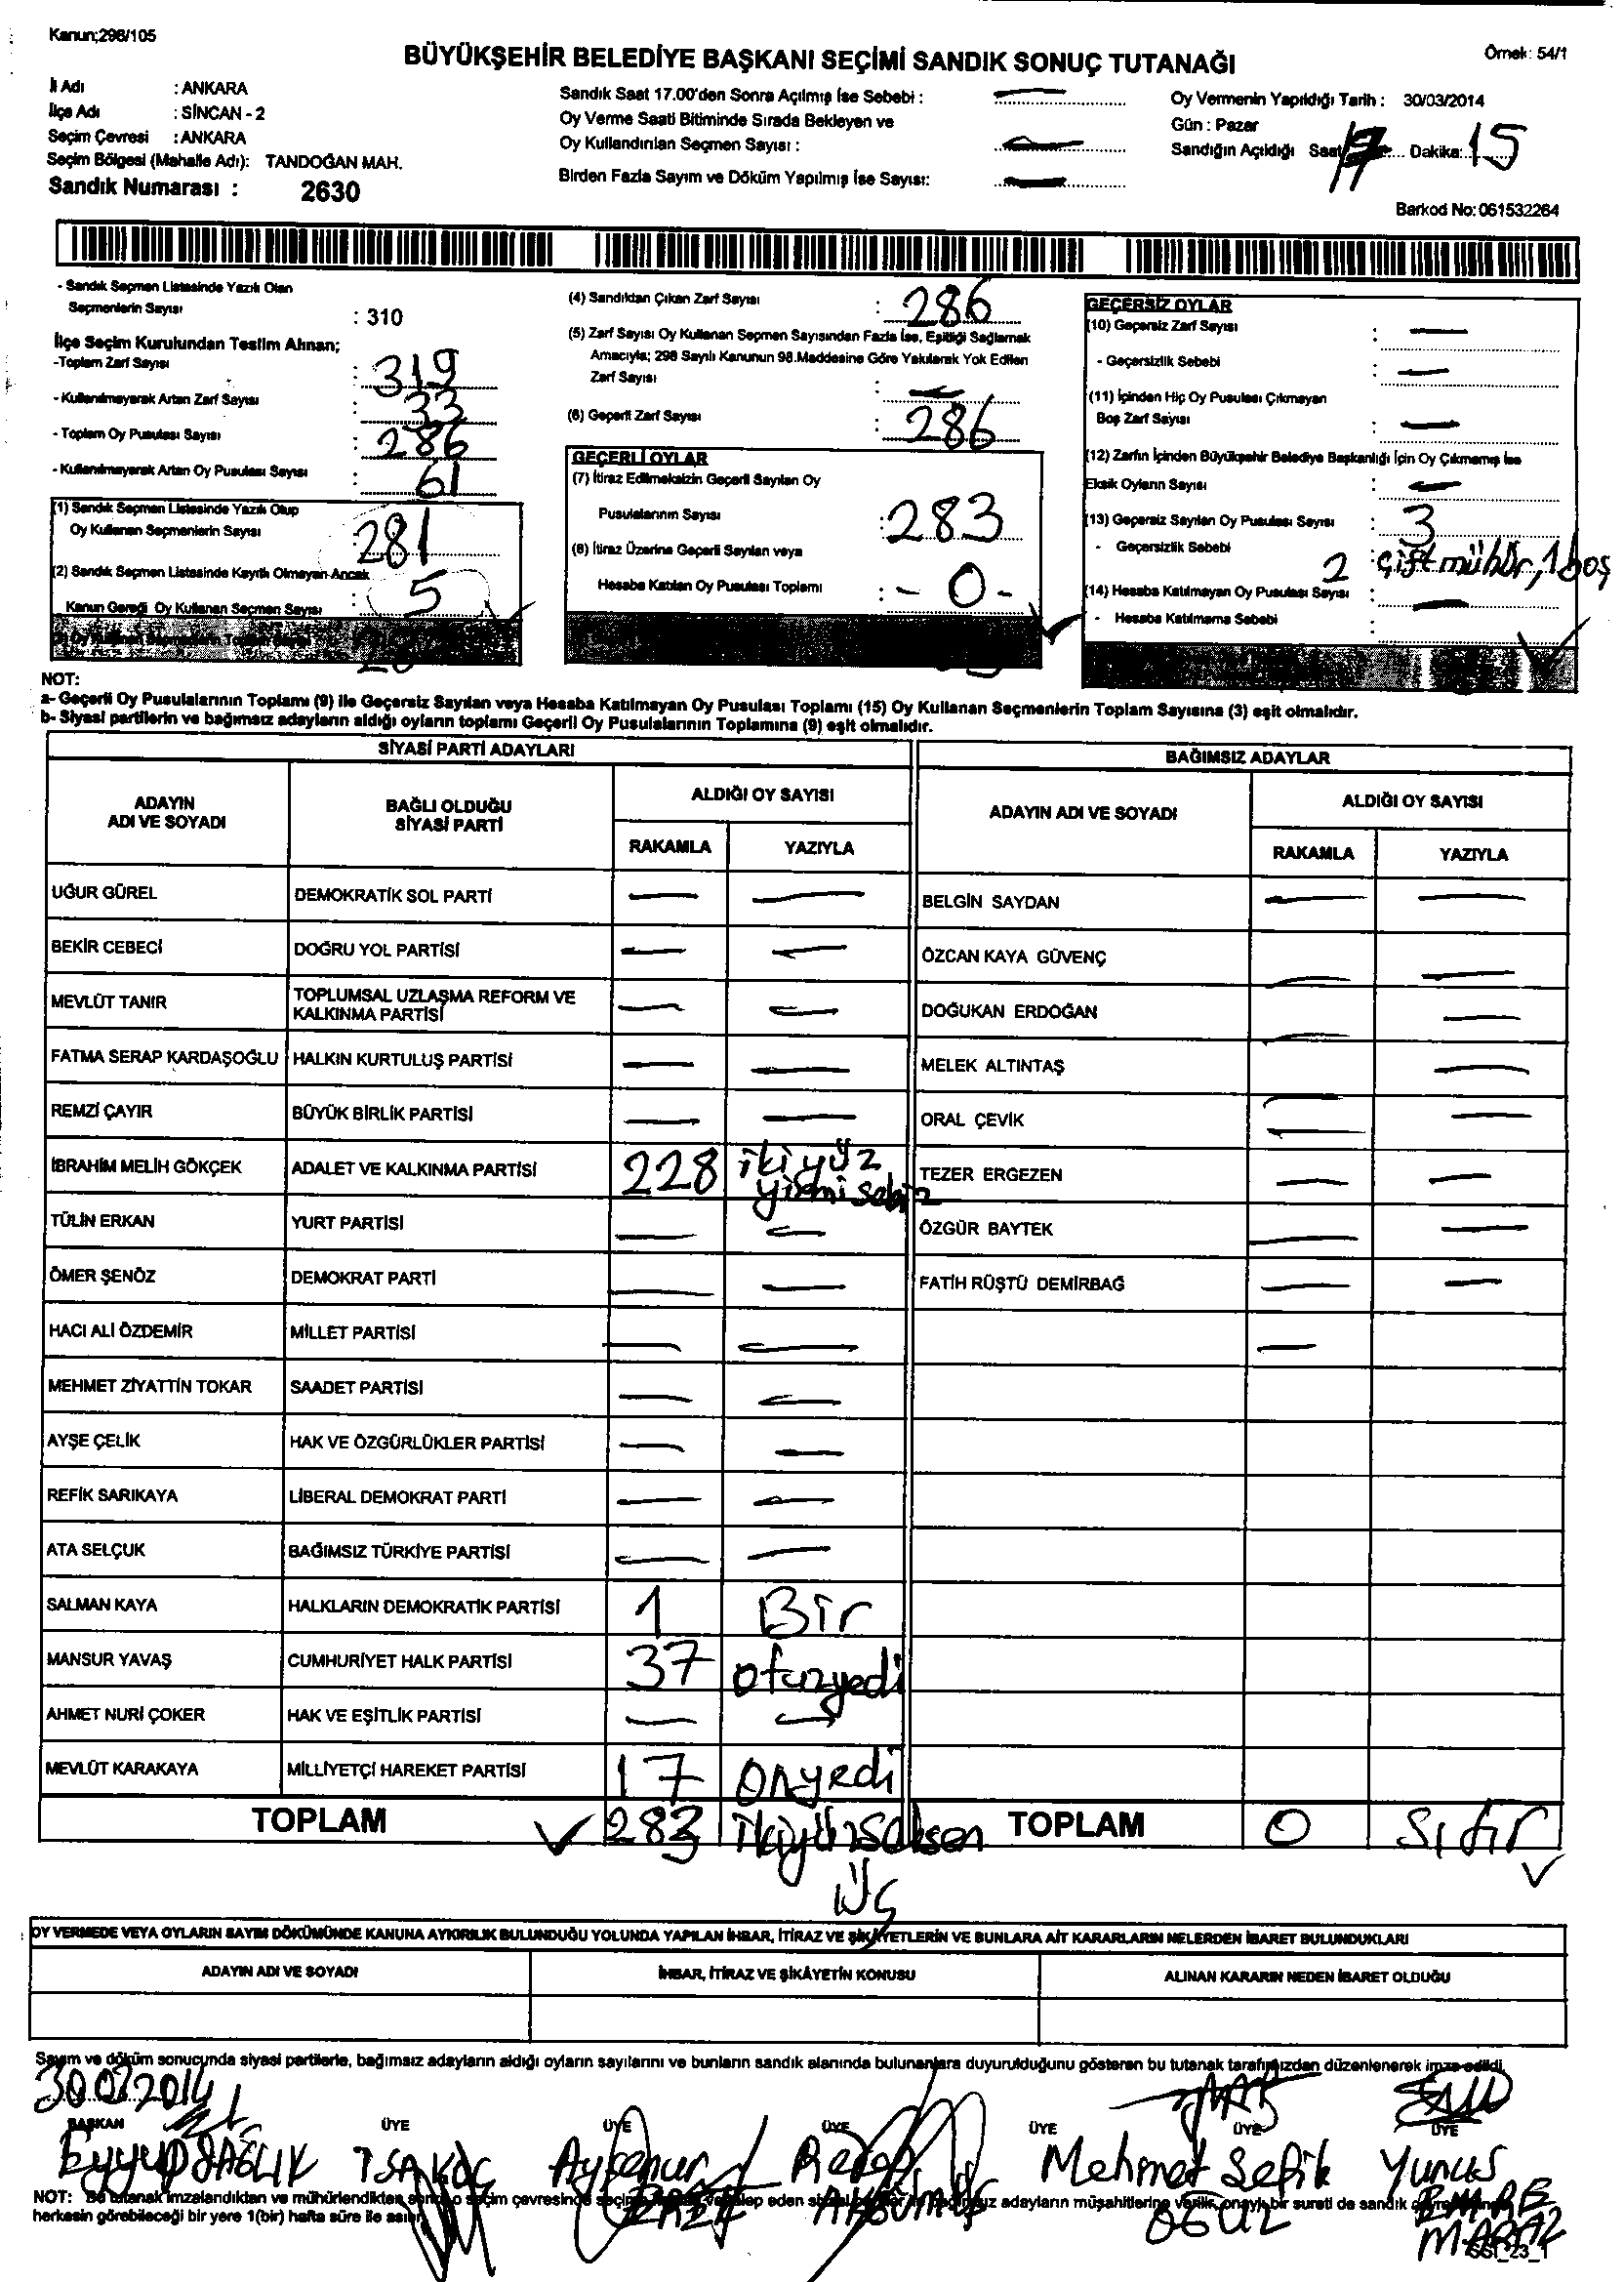 Kanun;298/105
BÜYÜKŞEHİR BELEDİYE BAŞKANI SEÇİMİ SANDIK SONUÇ TUTANAĞI
Örnek: 54/1
İl Adı : ANKARA
İlçe Adı : SİNCAN - 2
Seçim Çevresi : ANKARA
Seçim Bölgesi (Mahalle Adı): TANDOĞAN MAH.
Sandık Numarası : 2630
Sandık Saat 17.00'den Sonra Açılmış İse Sebebi :
Oy Verme Saati Bitiminde Sırada Bekleyen ve
Oy Kullandırılan Seçmen Sayısı :
Birden Fazla Sayım ve Döküm Yapılmış İse Sayısı:
Oy Vermenin Yapıldığı Tarih : 30/03/2014
Gün : Pazar
Sandığın Açıldığı Saat 17 Dakika: 15
Barkod No: 061532264
- Sandık Seçmen Listesinde Yazılı Olan
Seçmenlerin Sayısı : 310
İlçe Seçim Kurulundan Teslim Alınan;
-Toplam Zarf Sayısı : 319
- Kullanılmayarak Artan Zarf Sayısı : 33
- Toplam Oy Pusulası Sayısı : 286
- Kullanılmayarak Artan Oy Pusulası Sayısı : 61
(1) Sandık Seçmen Listesinde Yazılı Olup
Oy Kullanan Seçmenlerin Sayısı : 281
(2) Sandık Seçmen Listesinde Kayıtlı Olmayan Ancak
Kanun Gereği Oy Kullanan Seçmen Sayısı : 5
(4) Sandıktan Çıkan Zarf Sayısı : 286
(5) Zarf Sayısı Oy Kullanan Seçmen Sayısından Fazla İse, Eşitliği Sağlamak
Amacıyla; 298 Sayılı Kanunun 98.Maddesine Göre Yakılarak Yok Edilen
Zarf Sayısı :
(6) Geçerli Zarf Sayısı : 286
GEÇERLİ OYLAR
(7) İtiraz Edilmeksizin Geçerli Sayılan Oy
Pusulalarının Sayısı : 283
(8) İtiraz Üzerine Geçerli Sayılan veya
Hesaba Katılan Oy Pusulası Toplamı : - 0 -
GEÇERSİZ OYLAR
(10) Geçersiz Zarf Sayısı :
- Geçersizlik Sebebi :
(11) İçinden Hiç Oy Pusulası Çıkmayan
Boş Zarf Sayısı :
(12) Zarfın İçinden Büyükşehir Belediye Başkanlığı İçin Oy Çıkmamış İse
Eksik Oyların Sayısı :
(13) Geçersiz Sayılan Oy Pusulası Sayısı : 3
- Geçersizlik Sebebi : 2 çift mühür, 1 boş
(14) Hesaba Katılmayan Oy Pusulası Sayısı :
- Hesaba Katılmama Sebebi :
NOT:
a- Geçerli Oy Pusulalarının Toplamı (9) ile Geçersiz Sayılan veya Hesaba Katılmayan Oy Pusulası Toplamı (15) Oy Kullanan Seçmenlerin Toplam Sayısına (3) eşit olmalıdır.
b- Siyasi partilerin ve bağımsız adayların aldığı oyların toplamı Geçerli Oy Pusulalarının Toplamına (9) eşit olmalıdır.
SİYASİ PARTİ ADAYLARI
BAĞIMSIZ ADAYLAR
ADAYIN ADI VE SOYADI
BAĞLI OLDUĞU SİYASİ PARTİ
ALDIĞI OY SAYISI
RAKAMLA YAZIYLA
ADAYIN ADI VE SOYADI
ALDIĞI OY SAYISI
RAKAMLA YAZIYLA
UĞUR GÜREL DEMOKRATİK SOL PARTİ
BELGİN SAYDAN
BEKİR CEBECİ DOĞRU YOL PARTİSİ
ÖZCAN KAYA GÜVENÇ
MEVLÜT TANIR TOPLUMSAL UZLAŞMA REFORM VE KALKINMA PARTİSİ
DOĞUKAN ERDOĞAN
FATMA SERAP KARDAŞOĞLU HALKIN KURTULUŞ PARTİSİ
MELEK ALTINTAŞ
REMZİ ÇAYIR BÜYÜK BİRLİK PARTİSİ
ORAL ÇEVİK
İBRAHİM MELİH GÖKÇEK ADALET VE KALKINMA PARTİSİ 228 iki yüz yirmi sekiz
TEZER ERGEZEN
TÜLİN ERKAN YURT PARTİSİ
ÖZGÜR BAYTEK
ÖMER ŞENÖZ DEMOKRAT PARTİ
FATİH RÜŞTÜ DEMİRBAĞ
HACI ALİ ÖZDEMİR MİLLET PARTİSİ
MEHMET ZİYATTİN TOKAR SAADET PARTİSİ
AYŞE ÇELİK HAK VE ÖZGÜRLÜKLER PARTİSİ
REFİK SARIKAYA LİBERAL DEMOKRAT PARTİ
ATA SELÇUK BAĞIMSIZ TÜRKİYE PARTİSİ
SALMAN KAYA HALKLARIN DEMOKRATİK PARTİSİ 1 Bir
MANSUR YAVAŞ CUMHURİYET HALK PARTİSİ 37 otuzyedi
AHMET NURİ ÇOKER HAK VE EŞİTLİK PARTİSİ
MEVLÜT KARAKAYA MİLLİYETÇİ HAREKET PARTİSİ 17 onyedi
TOPLAM 283 ikiyüzseksen üç
TOPLAM 0 Sıfır
OY VERMEDE VEYA OYLARIN SAYIM DÖKÜMÜNDE KANUNA AYKIRILIK BULUNDUĞU YOLUNDA YAPILAN İHBAR, İTİRAZ VE ŞİKÂYETLERİN VE BUNLARA AİT KARARLARIN NELERDEN İBARET BULUNDUKLARI
ADAYIN ADI VE SOYADI İHBAR, İTİRAZ VE ŞİKÂYETİN KONUSU ALINAN KARARIN NEDEN İBARET OLDUĞU
Sayım ve döküm sonucunda siyasi partilerle, bağımsız adayların aldığı oyların sayılarını ve bunların sandık alanında bulunanlara duyurulduğunu gösteren bu tutanak tarafımızdan düzenlenerek imza edildi.
30.03.2014
BAŞKAN ÜYE ÜYE ÜYE ÜYE ÜYE ÜYE
Eyyup SAĞLIK İSA KOÇ Ayşenur Recep Mehmet Sefik Yunus
AKGÜMÜŞ OĞUZ EMRE
NOT: Bu tutanak imzalandıktan ve mühürlendikten sonra o seçim çevresinde adayların müşahitlerine verilir, onaylı bir sureti de sandık
herkesin görebileceği bir yere 1(bir) hafta süre ile asılır.